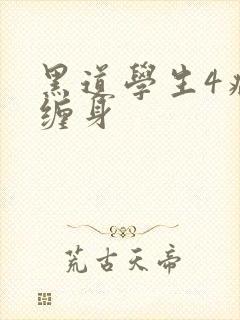 黑道學生4
缠身
荒古天帝